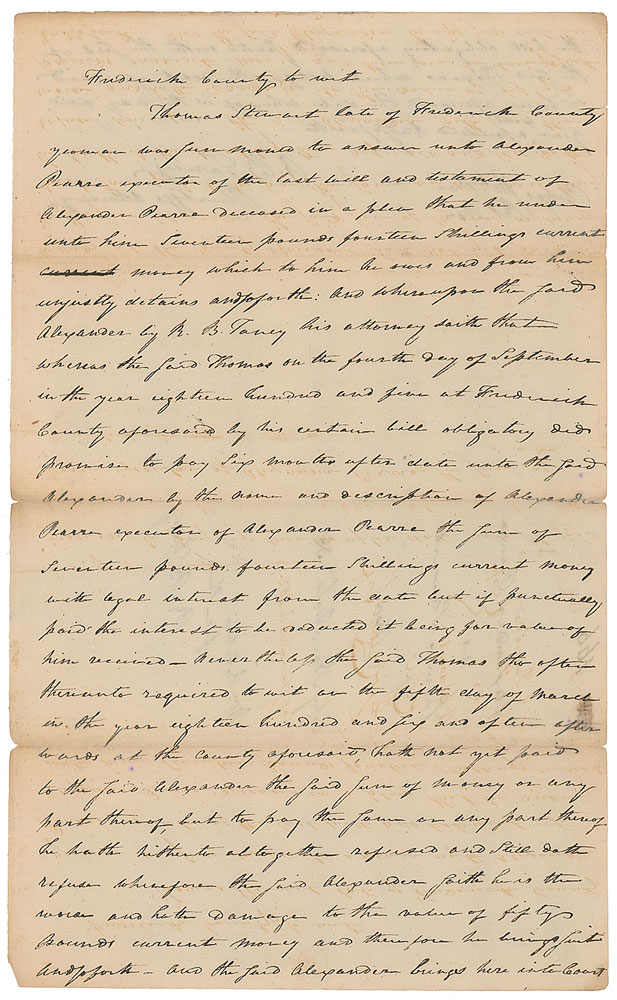 Frederick County to wit
Thomas Stewart late of Frederick County
yeoman was summoned to answer unto Alexander
Pearre executor of the last will and testament of
Alexander Pearre deceased in a plea that he render
unto him Seventeen pounds fourteen Shillings current
current money which to him he owes and from him
unjustly detains and soforth: And whereupon the said
Alexander by R. B. Taney his attorney saith that
whereas the said Thomas on the fourth day of September
in the year eighteen hundred and five at Frederick
County aforesaid by his certain bill obligatory did
promise to pay Six months after date unto the said
Alexander by the name and description of Alexander
Pearre executor of Alexander Pearre the sum of
Seventeen pounds fourteen Shillings current money
with legal interest from the date but if punctually
paid the interest to be deducted it being for value of
him received — Never the less the said Thomas tho often
thereunto required to wit on the fifth day of March
in the year eighteen hundred and six and often after
wards at the County aforesaid, hath not yet paid
to the said Alexander the said sum of money or any
part thereof, but to pay the same or any part thereof
he hath hitherto altogether refused and still doth
refuse wherefore the said Alexander saith he is the
worse and hath damage to the value of fifty
pounds current money and therefore he brings suit
and soforth — and the said Alexander brings here into Court